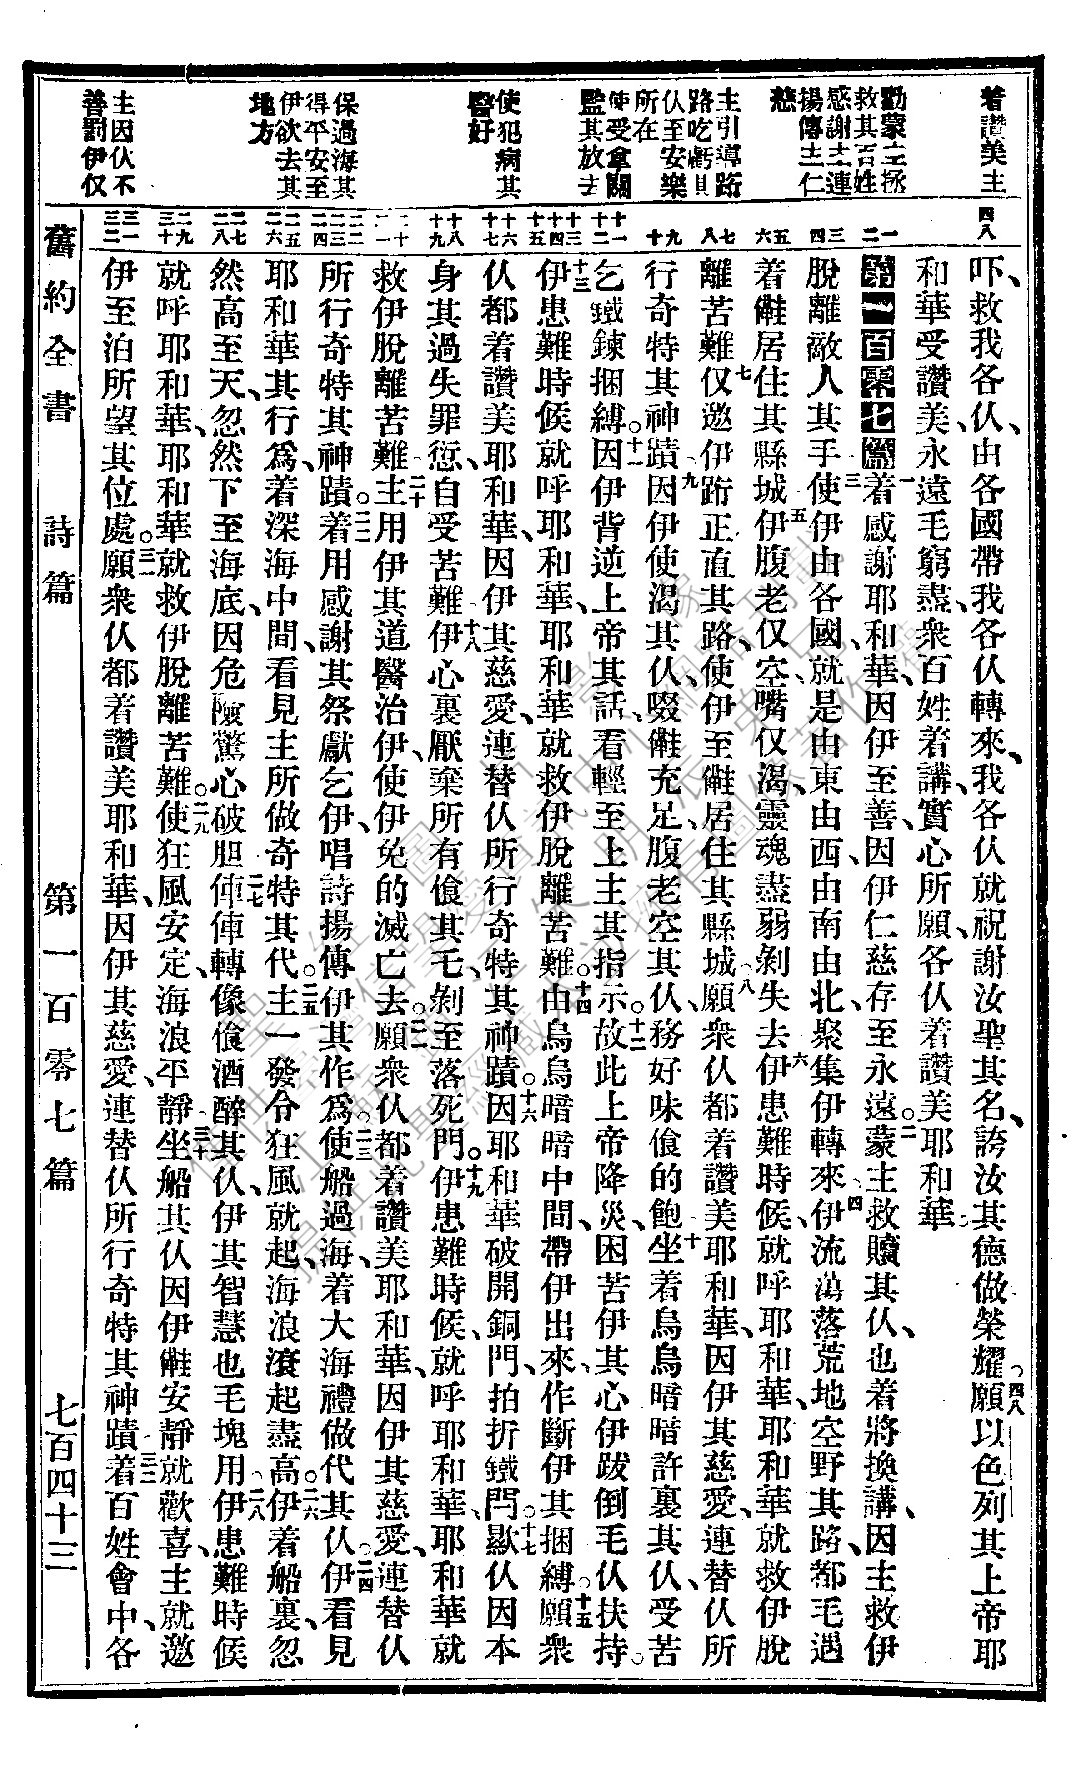 着讚美主
勸蒙主拯
救其百姓
感謝主連
揚傳主仁
慈
主引導跅
路吃虧其
伙至安樂
所在
使受拿關
監其放去
使犯病其
醫好
保過海其
得平安至
伊欲去其
地方
主因伙不
善罰伊仅
四八
一二
三四
五六
七八
九十
十一十二
十三十四十五
十六十七
十八十九
二十二一
二二二三二四
二五二六
二七二八
二九三十
三一三二
吓、救我各仈、由各國帶我各仈轉來、我各仈就祝謝汝聖其名、誇汝其德做榮耀。四八願以色列其上帝耶
和華受讚美、永遠毛窮盡、衆百姓着講、實心所願、各仈着讚美耶和華
第一百零七篇 一着感謝耶和華、因伊至善、因伊仁慈存至永遠。二蒙主救贖其仈、也着將換講、因主救伊
脫離敵人其手、三使伊由各國、就是由東由西由南由北、聚集伊轉來、四伊流蕩落荒地空野其路、都毛遇
着㒰居住其縣城、五伊腹老仅空、嘴仅渴、靈魂盡弱剝失去、六伊患難時候、就呼耶和華、耶和華就救伊脫
離苦難、七仅邀伊跅正直其路、使伊至㒰居住其縣城、八願衆仈都着讚美耶和華、因伊其慈愛、連替仈所
行奇特其神蹟、九因伊使渴其仈啜㒰充足、腹老空其仈、務好味飧的飽、十坐着烏烏暗暗許裏其仈、受苦
乞鐵鍊捆縛。十一因伊背逆上帝其話、看輕至上主其指示、十二故此上帝降災、困苦伊其心、伊跋倒毛仈扶持。
十三伊患難時候、就呼耶和華、耶和華就救伊脫離苦難。十四由烏烏暗暗中間、帶伊出來、作斷伊其捆縛。十五願衆
仈都着讚美耶和華、因伊其慈愛、連替仈所行奇特其神蹟。十六因耶和華破開銅門、拍折鐵閂。十七歇仈因本
身其過失罪愆、自受苦難、十八伊心裏厭棄所有飧其毛、剝至落死門。十九伊患難時候、就呼耶和華、耶和華就
救伊脫離苦難、二十主用伊其道醫治伊、使伊免的滅亡去。二一願衆仈都着讚美耶和華、因伊其慈愛、連替仈
所行奇特其神蹟。二二着用感謝其祭獻乞伊、唱詩揚傳伊其作爲。二三使船過海、着大海禮做代其仈。二四伊看見
耶和華其行爲、着深海中間、看見主所做奇特其代。二五主一發令、狂風就起、海浪滾起盡高。二六伊着船裏、忽
然高至天、忽然下至海底、因危險驚心破胆、二七俥俥轉、像飧酒醉其仈、伊其智慧也毛塊用、二八伊患難時候
就呼耶和華、耶和華就救伊脫離苦難。二九使狂風安定、海浪平靜、三十坐船其仈、因伊㒰安靜、就歡喜、主就邀
伊至泊所望其位處。三一願衆仈都着讚美耶和華、因伊其慈愛、連替仈所行奇特其神蹟、三二着百姓會中、各
舊約全書　詩篇　第一百零七篇　七百四十三